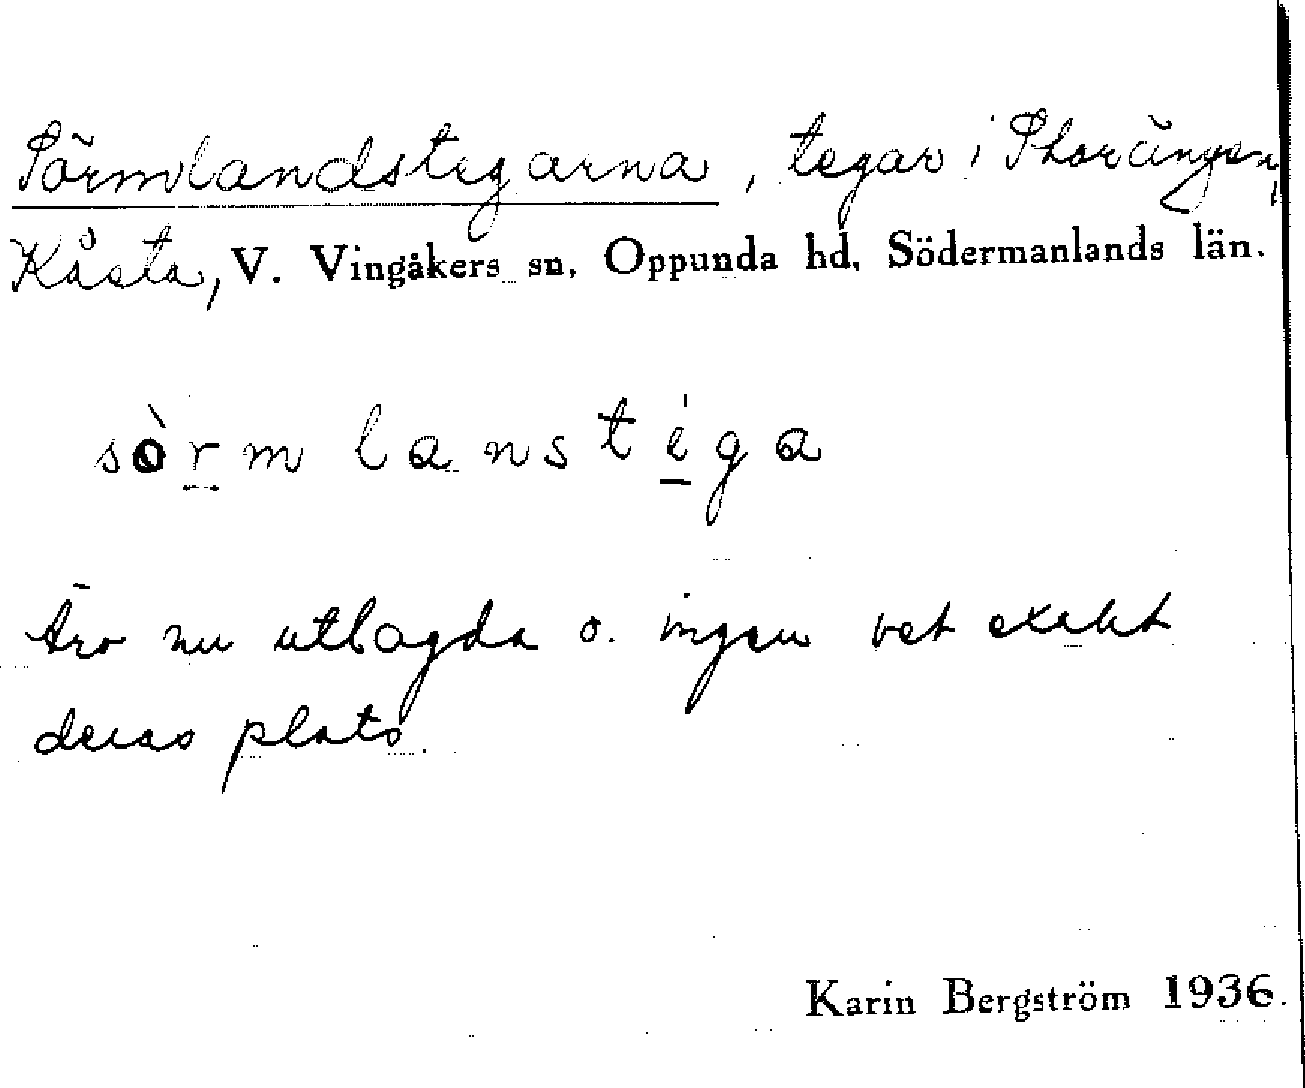 Sörmlandstegarna, tegar i Storängen,
Kåsta, V. Vingåkers sn, Oppunda hd, Södermanlands län.
sòrmlanstega
Äro nu utlagda o. ingen vet exakt
deras plats.
Karin Bergström 1936.